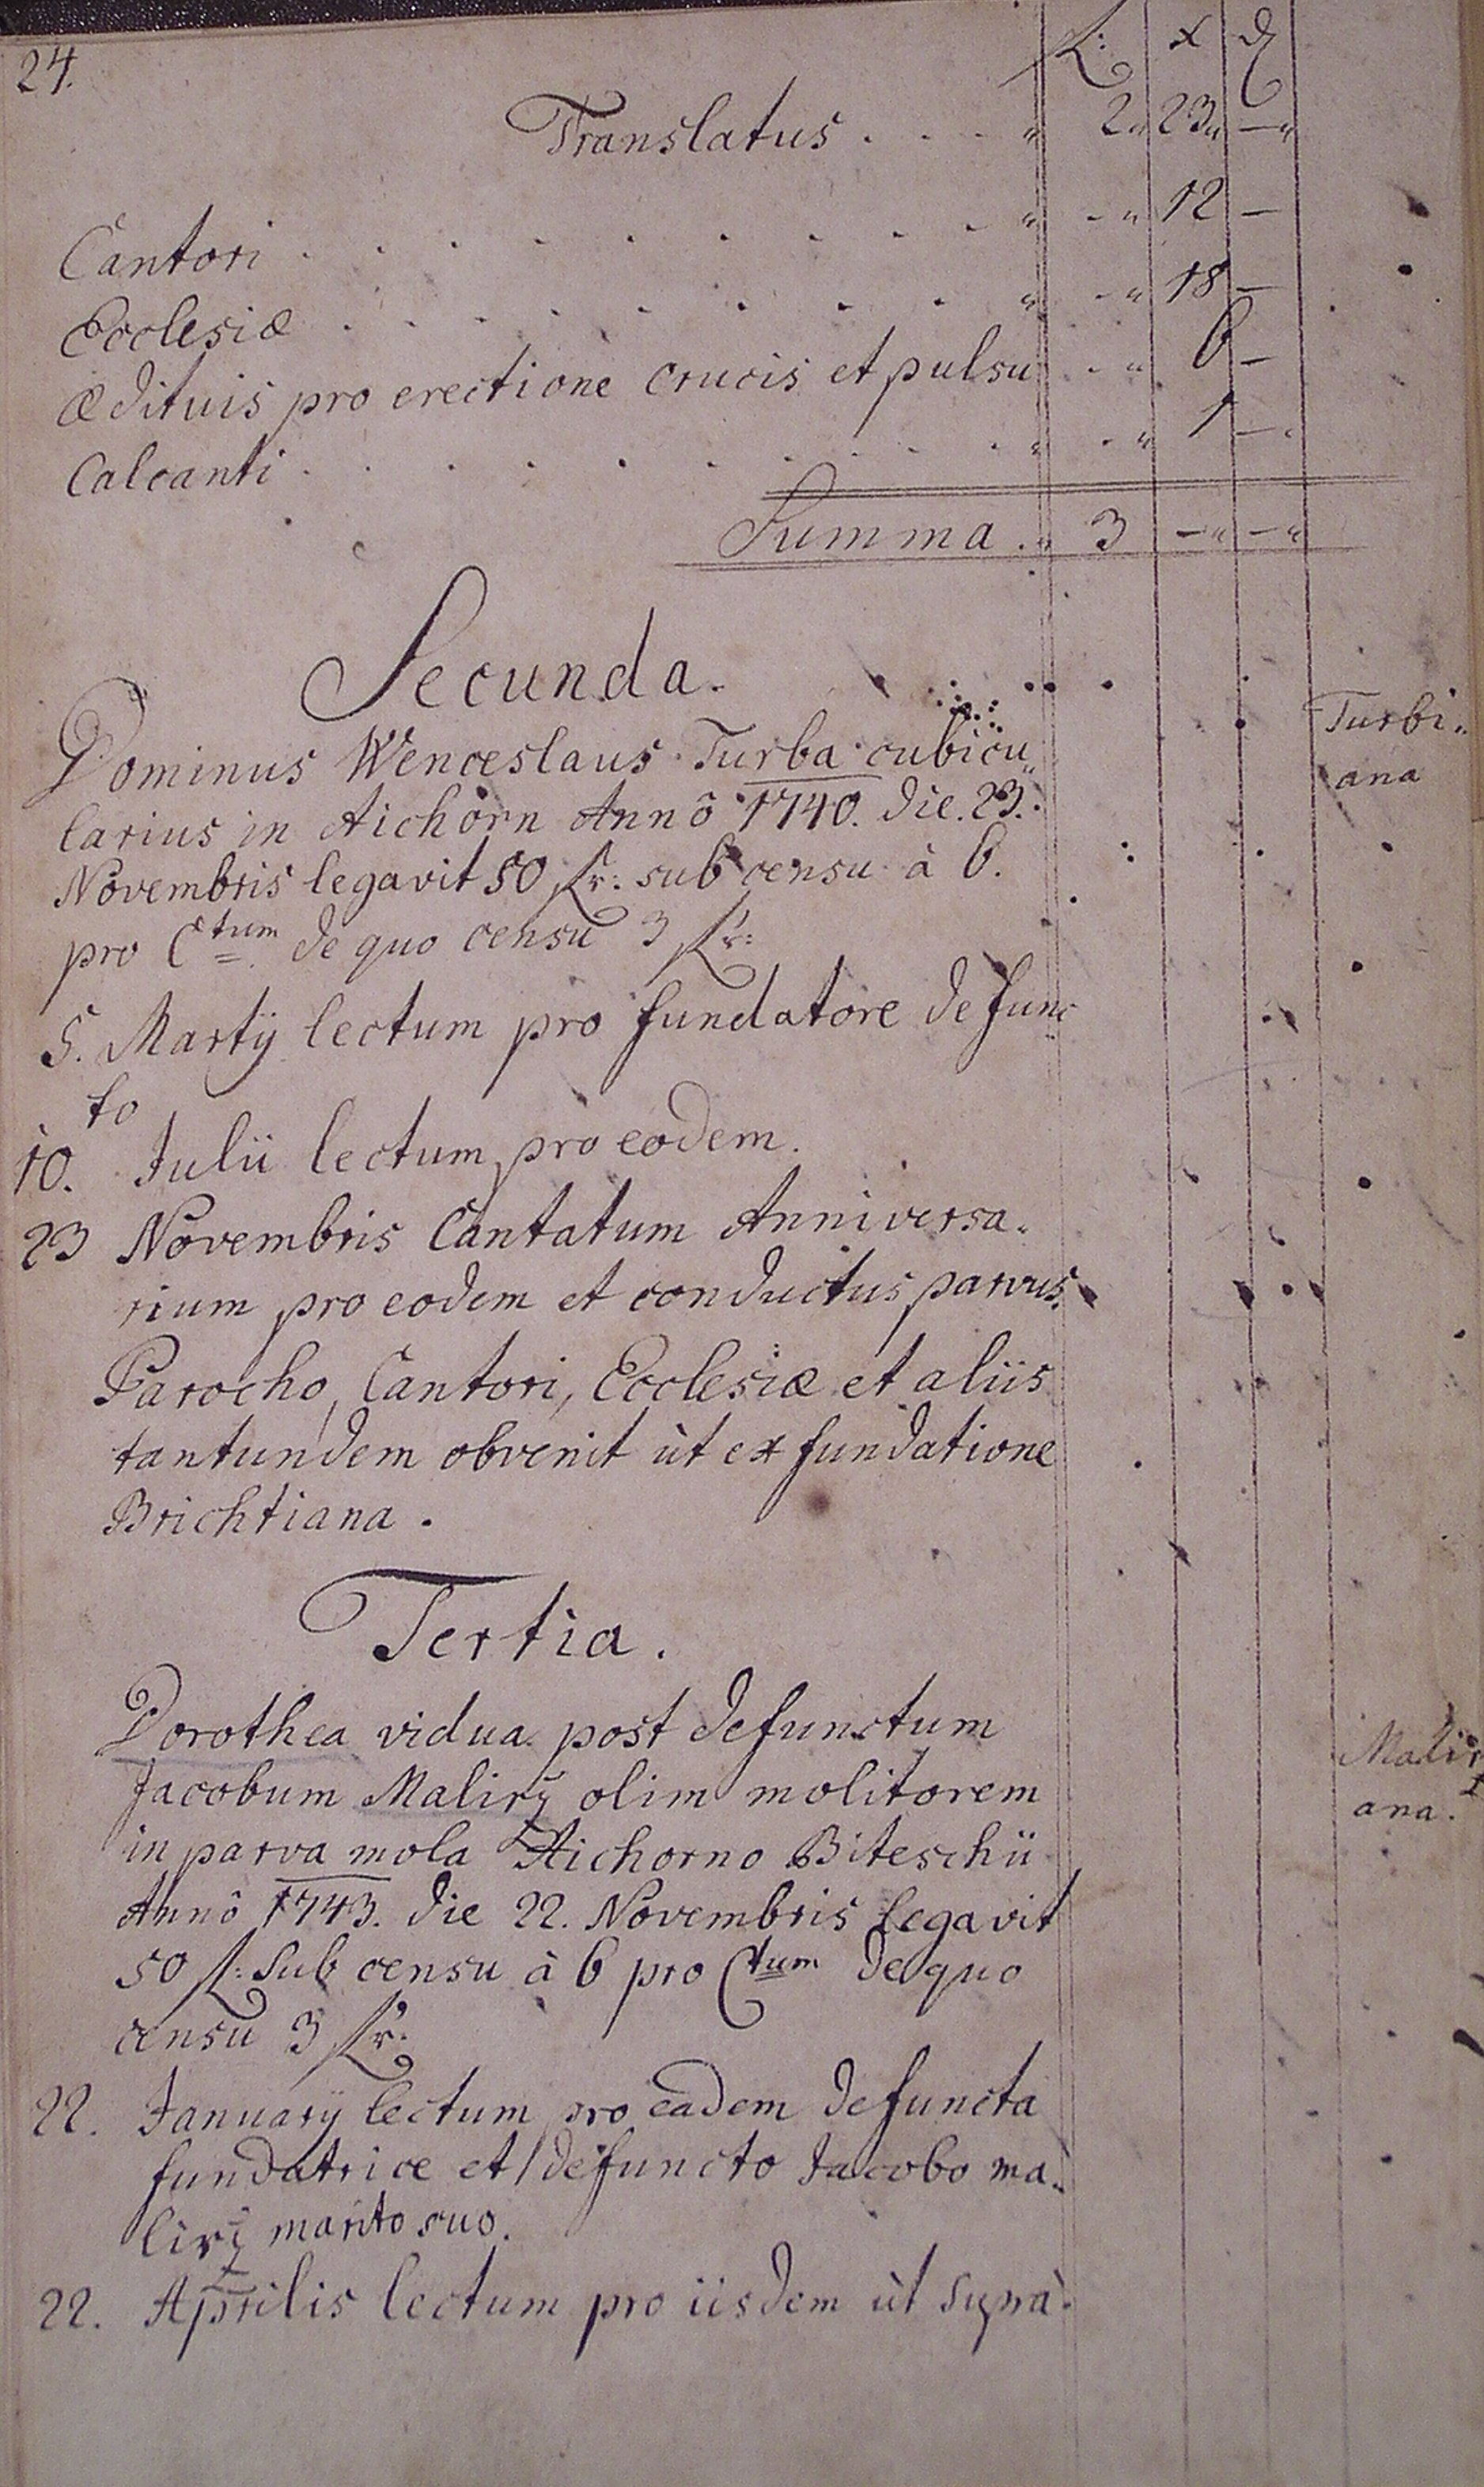 24.
fl: x ₰
Translatus . . . . „ 2 „ 23 „ — „
Cantori . . . . . . . . . „ - „ 12 —
Ecclesiæ . . . . . . . . . „ - „ 18 —
Ædituis pro erectione crucis et pulsu - „ 6 —
Calcanti . . . . . . . . . „ - „ 1 —
Summa . „ 3 — „ — „
Secunda.
Dominus Wenceslaus Turba cubicu„
Turbi„
larius in Aichorn Annô 1740. die. 23.
ana
Novembris legavit 50 fr: sub censu à 6.
pro Ctum. de quo censu 3 fr:
5. Martÿ lectum pro fundatore defunc
to
10. Julii lectum pro eodem.
23 Novembris Cantatum Anniversa„
rium pro eodem et conductus parvus.
Parocho, Cantori, Ecclesiæ et aliis
tantundem obvenit ùt ex fundatione
Brichtiana .
Tertia.
Dorothea vidua post defunctum
Jacobum Malirz olim molitorem
Malirz
in parva mola Aichorno Biteschii
ana.
Annô 1743. die 22. Novembris legavit
50 fl: sub censu à 6 pro Ctum de quo
censu 3 fr:
22. Januarÿ lectum pro eadem defuncta
fundatrice et defuncto Jacobo ma„
lirz marito suo.
22. Aprilis lectum pro iisdem ùt suprà.